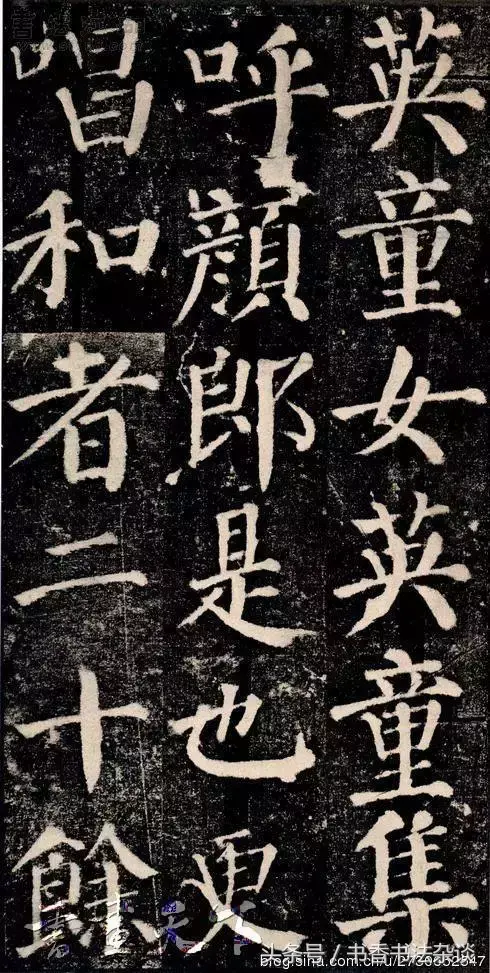 英童女英童集
呼顔郎是也更
唱和者二十餘
头条号／书香书法杂谈
blog.sina.com.cn/u/2730352547